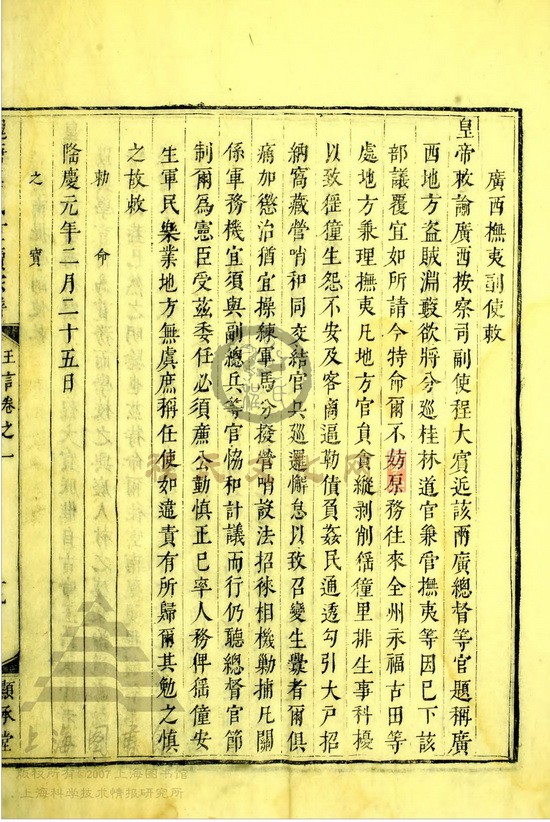 廣西撫夷副使敕
皇帝敕諭廣西按察司副使程大賓近該兩廣總督等官題稱廣
西地方盜賊淵藪欲將分巡桂林道官兼管撫夷等因已下該
部議覆宜如所請今特命爾不妨原務往來全州永福古田等
處地方兼理撫夷凡地方官員貪縱剥削徭獞里排生事科擾
以致徭獞生怨不安及客商逼勒債負姦民通透勾引大戶招
納窩藏營哨和同交結官兵巡邏懈怠以致召變生釁者爾俱
痛加懲治猶宜操練軍馬分撥營哨設法招徠相機勦捕凡關
係軍務機宜須與副總兵等官恊和計議而行仍聽總督官節
制爾為憲臣受兹委任必須廉公勤慎正已率人務俾徭獞安
生軍民樂業地方無虞庶稱任使如違責有所歸爾其勉之慎
之故敕
隆慶元年二月二十五日
勅命
之寶
王言卷之一
顯承堂
上海图书馆
版权所有©2007上海图书馆
上海科学技术情报研究所